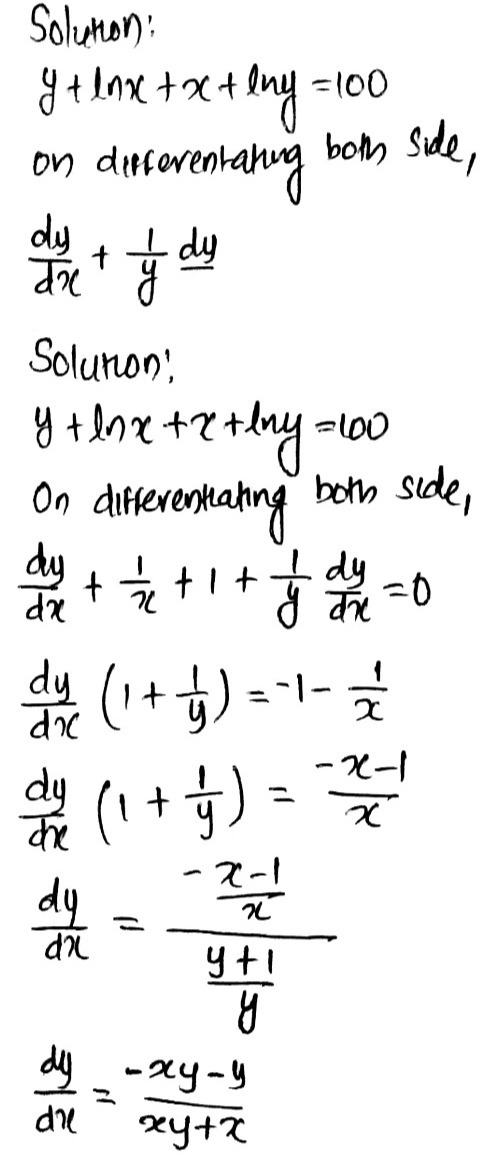 Solution:
y + lnx + x + lny = 100
on differentating both side,
dy/dx + 1/y dy
Solution:
y + lnx + x + lny = 100
On differentiating both side,
dy/dx + 1/x + 1 + 1/y dy/dx = 0
dy/dx (1 + 1/y) = -1 - 1/x
dy/dx (1 + 1/y) = (-x-1)/x
dy/dx = ((-x-1)/x)/((y+1)/y)
dy/dx = (-xy-y)/(xy+x)